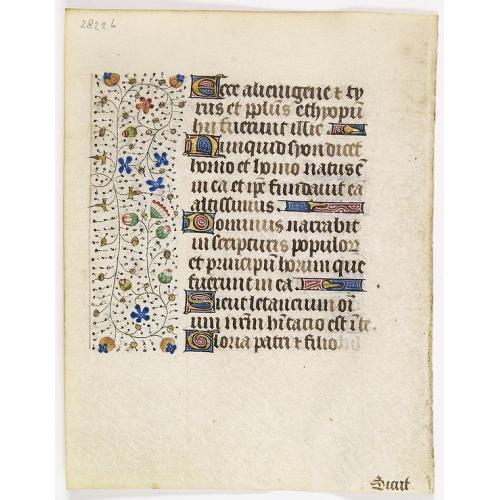 28226
Ecce alienigene et ty
rus et pplus ethyopu
hii fuerunt illic
Nunquid syon dicet
homo et homo natus e
in ea et ipe fundauit ea
altissimus.
Dominus narrabit
in scripturis populor
et principu horum que
fuerunt in ea.
Sicut letancium oi
um nrm hitacio est i te.
Gloria patri et filio
Sicut